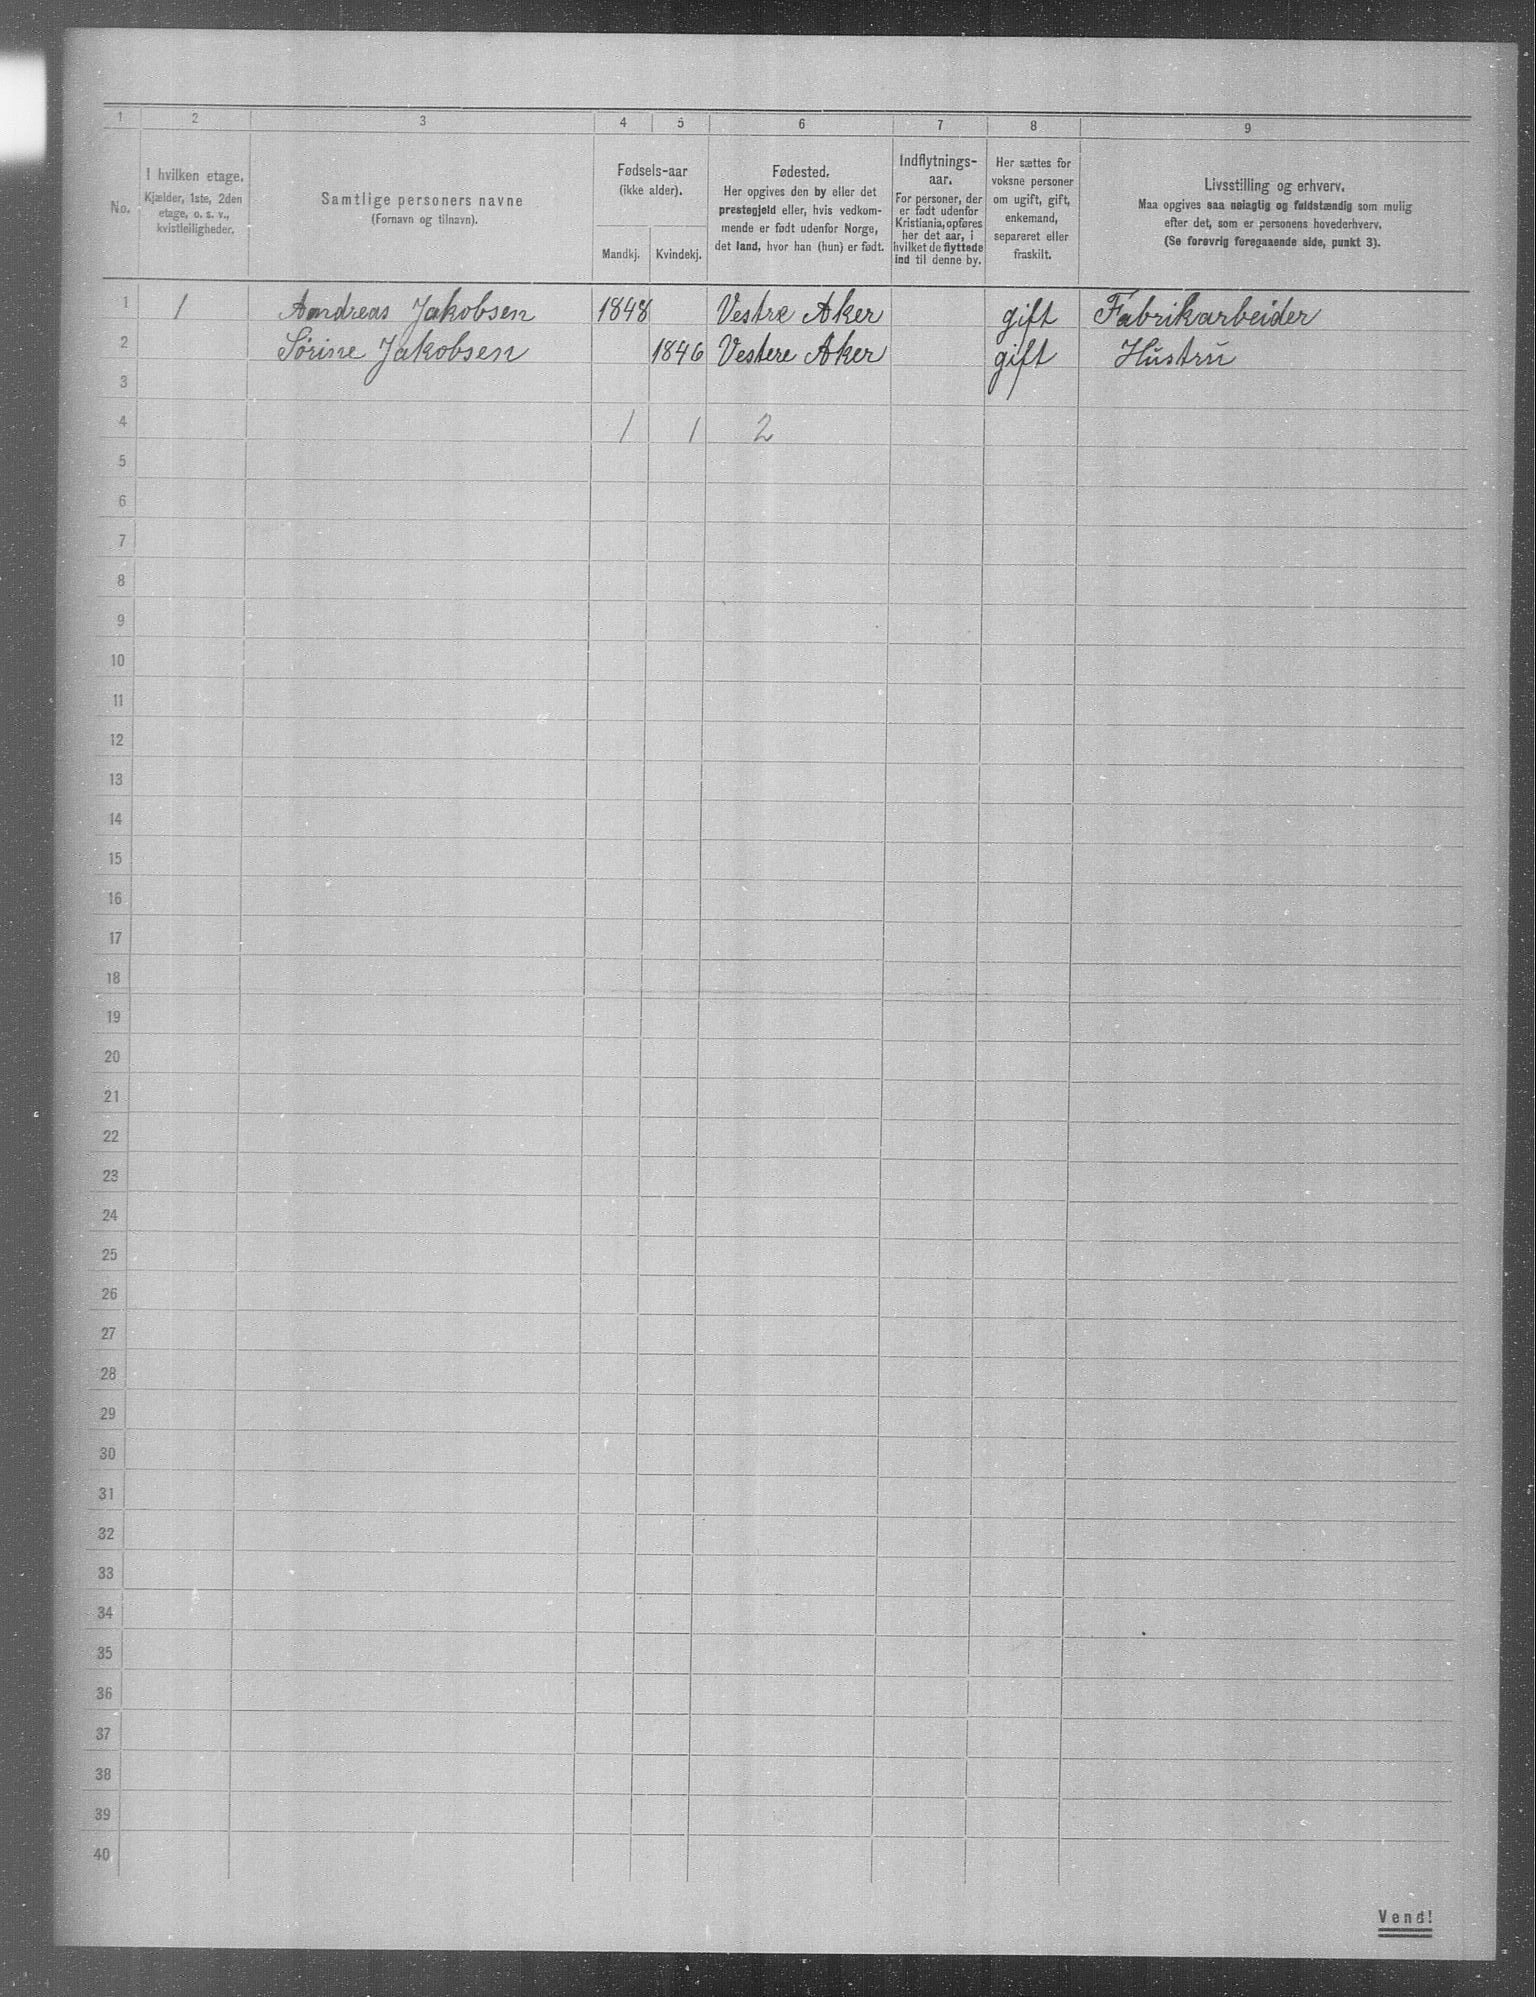 1 2 3 4 5 6 7 8 9
No.
I hvilken etage.
Kjælder, 1ste, 2den
etage, o. s. v.,
kvistleiligheder.
Samtlige personers navne
(Fornavn og tilnavn).
Fødsels-aar
(ikke alder).
Mandkj. Kvindekj.
Fødested.
Her opgives den by eller det
prestegjeld eller, hvis vedkom-
mende er født udenfor Norge,
det land, hvor han (hun) er født.
Indflytnings-
aar.
For personer, der
er født udenfor
Kristiania, opføres
her det aar, i
hvilket de flyttede
ind til denne by.
Her sættes for
voksne personer
om ugift, gift,
enkemand,
separeret eller
fraskilt.
Livsstilling og erhverv.
Maa opgives saa nøiagtig og fuldstændig som mulig
efter det, som er personens hovederhverv.
(Se forøvrig foregaaende side, punkt 3).
1 1 Andreas Jakobsen 1848 Vestre Aker gift Fabrikarbeider
2 Sørine Jakobsen 1846 Vestere Aker gift Hustru
3
4 1 1 2
5
6
7
8
9
10
11
12
13
14
15
16
17
18
19
20
21
22
23
24
25
26
27
28
29
30
31
32
33
34
35
36
37
38
39
40
Vend!